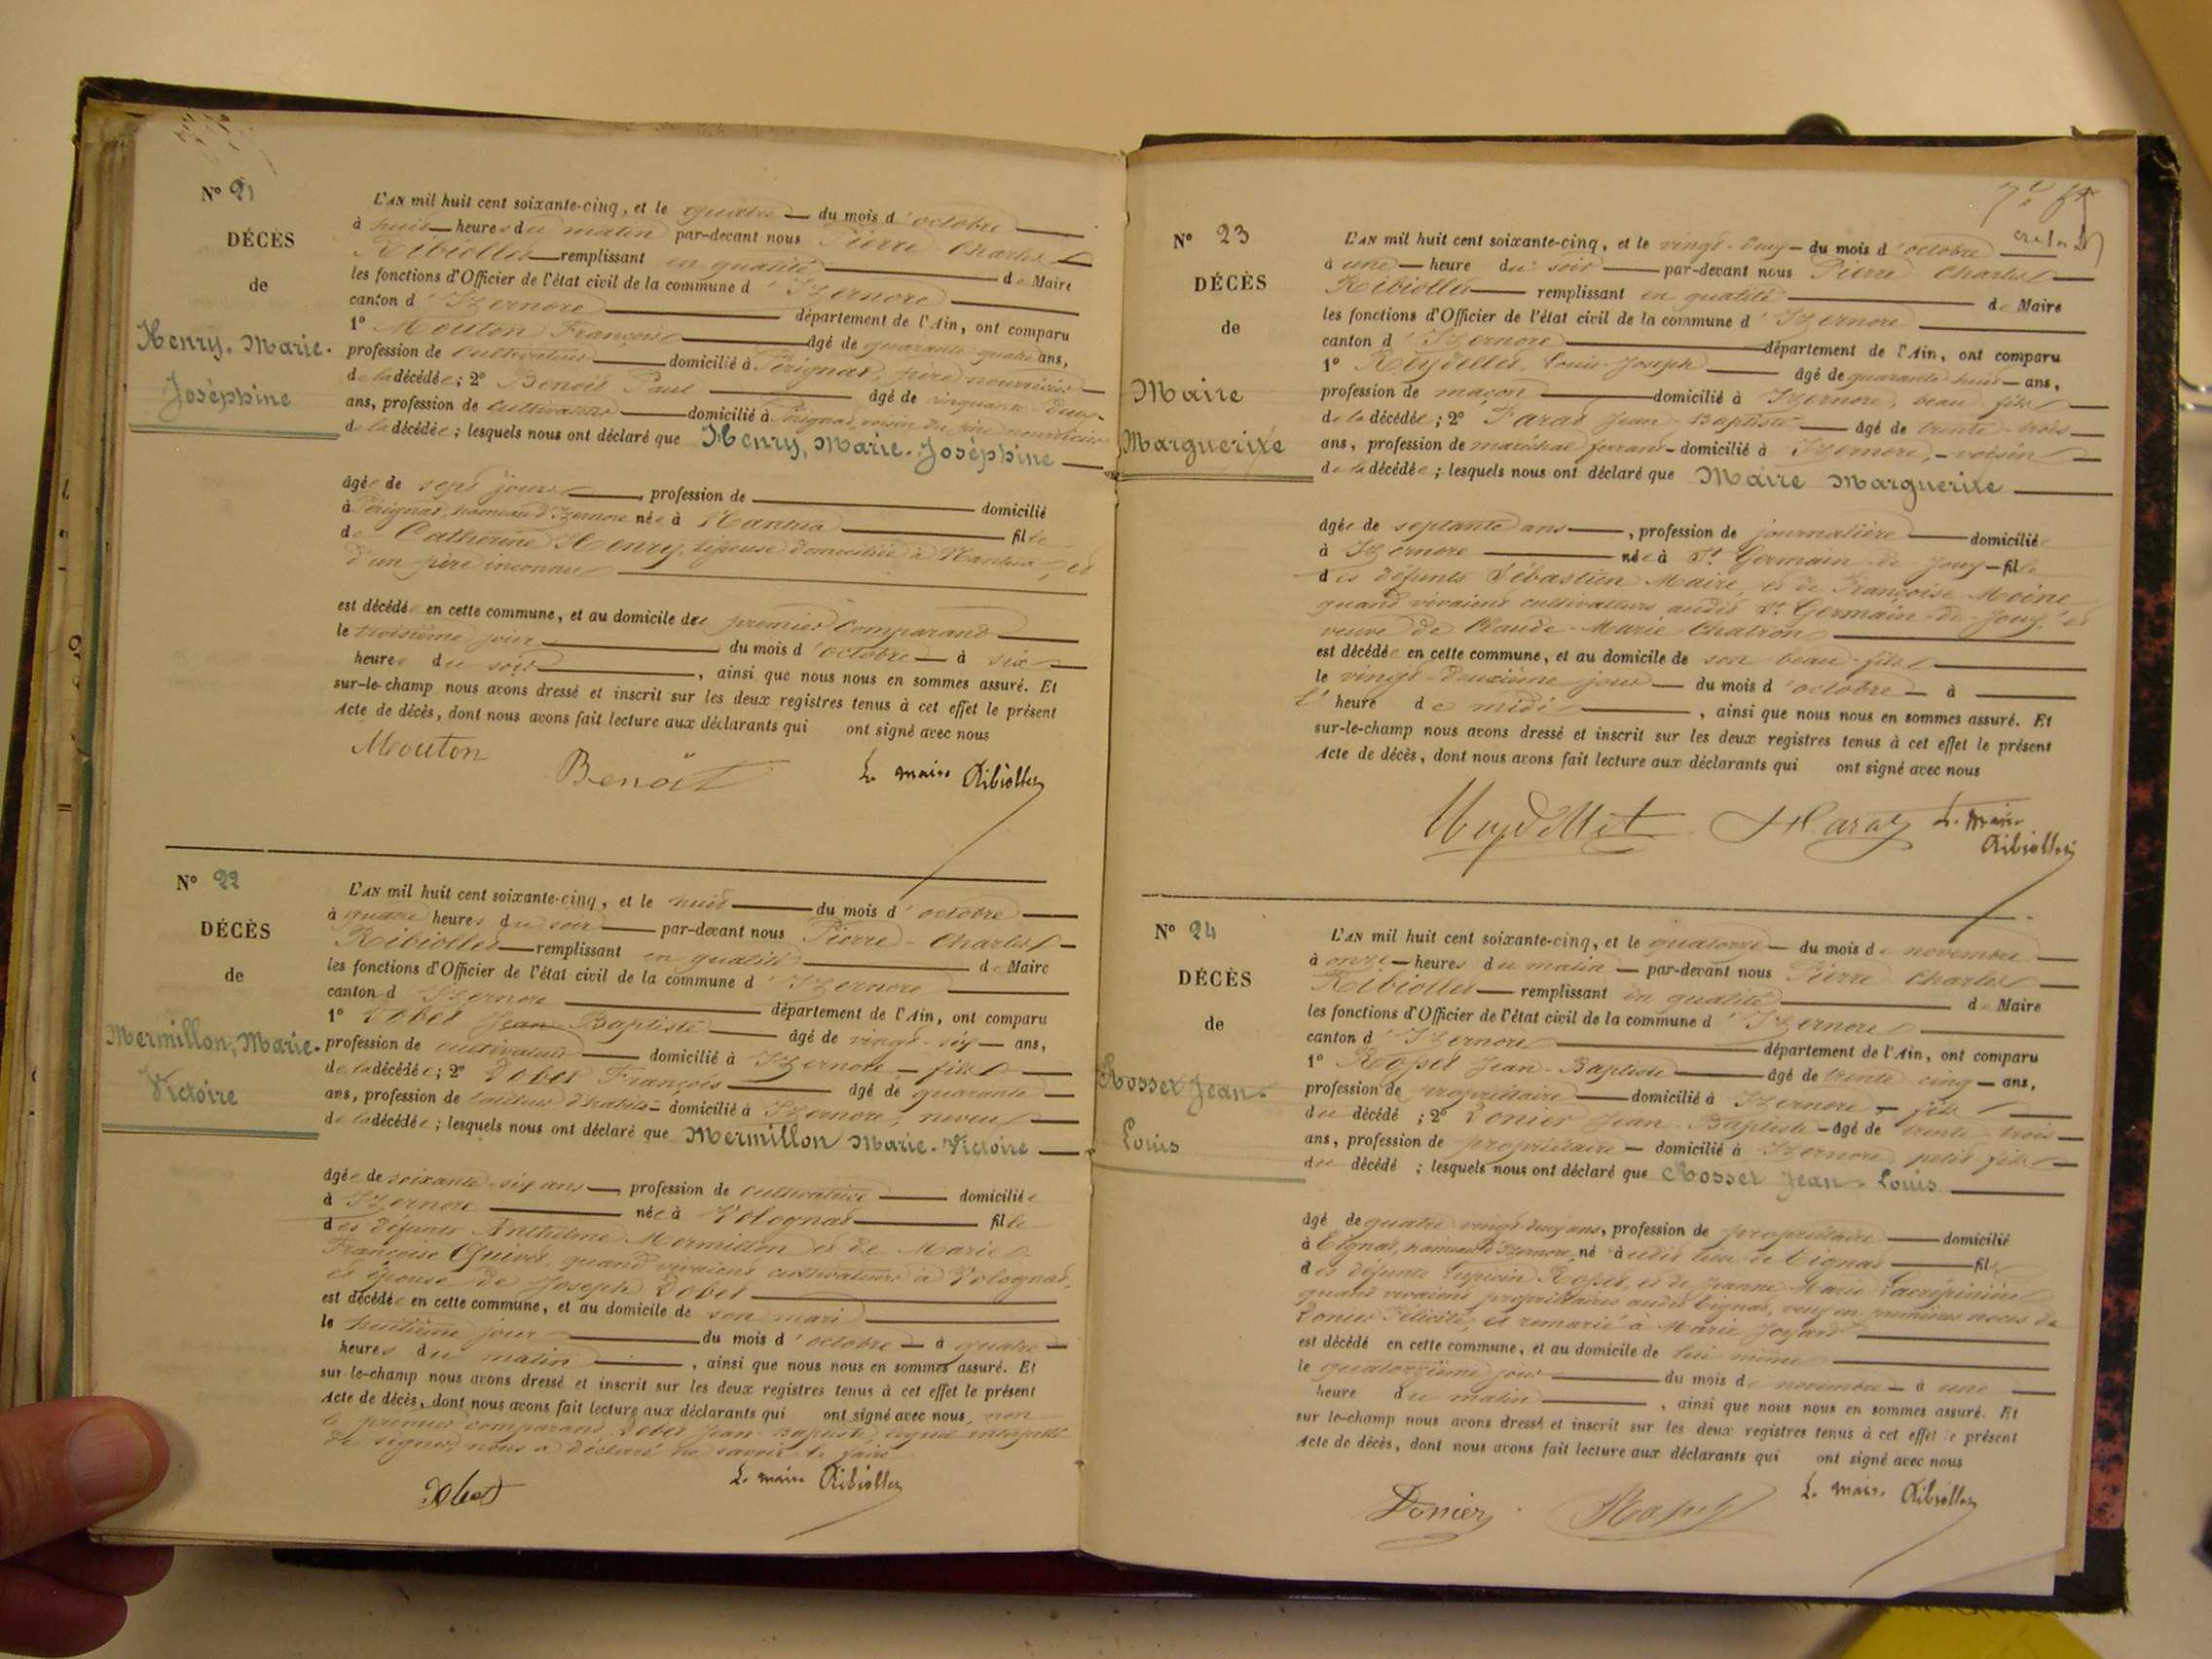 N° 21
DÉCÈS
de
Henry, Marie-
Joséphine
L'AN mil huit cent soixante-cinq, et le quatre du mois d'octobre
à huit heures du matin par-devant nous Pierre-Charles
Ribiollet remplissant en qualité de Maire
les fonctions d'Officier de l'état civil de la commune d'Izernore
canton d'Izernore département de l'Ain, ont comparu
1° Mouton François âgé de quarante-quatre ans,
profession de cultivateur domicilié à Pérignat, père nourricier
de la décédée; 2° Benoit Paul âgé de cinquante-deux
ans, profession de cultivateur domicilié à Pérignat, voisin du père nourricier
de la décédée; lesquels nous ont déclaré que Henry, Marie-Joséphine
âgée de sept jours, profession de domicilié
à Pérignat, hameau d'Izernore née à Nantua fille
de Catherine Henry, domiciliée à Nantua, et
d'un père inconnu
est décédée en cette commune, et au domicile du premier comparant
le troisième jour du mois d'octobre à six
heures du soir, ainsi que nous nous en sommes assuré. Et
sur-le-champ nous avons dressé et inscrit sur les deux registres tenus à cet effet le présent
Acte de décès, dont nous avons fait lecture aux déclarants qui ont signé avec nous
Mouton Benoît Le maire Ribiollet
N° 22
DÉCÈS
de
Mermillon, Marie-
Victoire
L'AN mil huit cent soixante-cinq, et le huit du mois d'octobre
à quatre heures du soir par-devant nous Pierre-Charles
Ribiollet remplissant en qualité de Maire
les fonctions d'Officier de l'état civil de la commune d'Izernore
canton d'Izernore département de l'Ain, ont comparu
1° Dobet Jean-Baptiste âgé de vingt-six ans,
profession de cultivateur domicilié à Izernore fils
de la décédée; 2° Dobet François âgé de quarante
ans, profession de tailleur d'habits domicilié à Izernore, neveu
de la décédée; lesquels nous ont déclaré que Mermillon Marie-Victoire
âgée de soixante-six ans, profession de cultivatrice domiciliée
à Izernore née à Volognat fille
des défunts Anthelme Mermillon et de Marie
Françoise Guivet, quand vivaient cultivateurs à Volognat,
et épouse de Joseph Dobet
est décédée en cette commune, et au domicile de son mari
le huitième jour du mois d'octobre à quatre
heures du matin, ainsi que nous nous en sommes assuré. Et
sur-le-champ nous avons dressé et inscrit sur les deux registres tenus à cet effet le présent
Acte de décès, dont nous avons fait lecture aux déclarants qui ont signé avec nous, non
le premier comparant, Dobet Jean-Baptiste, lequel interpellé
de signer, nous a déclaré ne savoir le faire
Dobet Le maire Ribiollet
N° 23
DÉCÈS
de
Maire
Marguerite
L'AN mil huit cent soixante-cinq, et le vingt-deux du mois d'octobre
à une heure du soir par-devant nous Pierre Charles
Ribiollet remplissant en qualité de Maire
les fonctions d'Officier de l'état civil de la commune d'Izernore
canton d'Izernore département de l'Ain, ont comparu
1° Reydellet Louis-Joseph âgé de quarante-huit ans,
profession de maçon domicilié à Izernore, beau-fils
de la décédée; 2° Jean-Baptiste âgé de trente-trois
ans, profession de maréchal ferrant domicilié à Izernore, voisin
de la décédée; lesquels nous ont déclaré que Maire Marguerite
âgée de septante ans, profession de journalière domiciliée
à Izernore née à St Germain-de-Joux fille
des défunts Sébastien Maire, et de Françoise Moine
quand vivaient cultivateurs audit St Germain-de-Joux, et
veuve de Claude-Marie Chatron
est décédée en cette commune, et au domicile de son beau-fils
le vingt-deuxième jour du mois d'octobre à
l'heure de midi, ainsi que nous nous en sommes assuré. Et
sur-le-champ nous avons dressé et inscrit sur les deux registres tenus à cet effet le présent
Acte de décès, dont nous avons fait lecture aux déclarants qui ont signé avec nous
Reydellet Le maire
Ribiollet
N° 24
DÉCÈS
de
Rosset Jean-
Louis
L'AN mil huit cent soixante-cinq, et le quatorze du mois de novembre
à onze heures du matin par-devant nous Pierre Charles
Ribiollet remplissant en qualité de Maire
les fonctions d'Officier de l'état civil de la commune d'Izernore
canton d'Izernore département de l'Ain, ont comparu
1° Rosset Jean-Baptiste âgé de trente-cinq ans,
profession de propriétaire domicilié à Izernore fils
du décédé; 2° Donier Jean-Baptiste âgé de trente-trois
ans, profession de propriétaire domicilié à Izernore, petit-fils
du décédé; lesquels nous ont déclaré que Rosset Jean-Louis
âgé de quatre-vingt-deux ans, profession de propriétaire domicilié
à Tignat, hameau d'Izernore, né audit lieu de Tignat fils
des défunts Lupicin Rosset, et de Jeanne Marie Lacrépinière
quand vivaient propriétaires audit Tignat, veuf en premières noces de
Donier Félicité, et remarié à Marie Joyard
est décédé en cette commune, et au domicile de lui même
le quatorzième jour du mois de novembre à une
heure du matin, ainsi que nous nous en sommes assuré. Et
sur-le-champ nous avons dressé et inscrit sur les deux registres tenus à cet effet le présent
Acte de décès, dont nous avons fait lecture aux déclarants qui ont signé avec nous
Donier Rosset Le maire Ribiollet